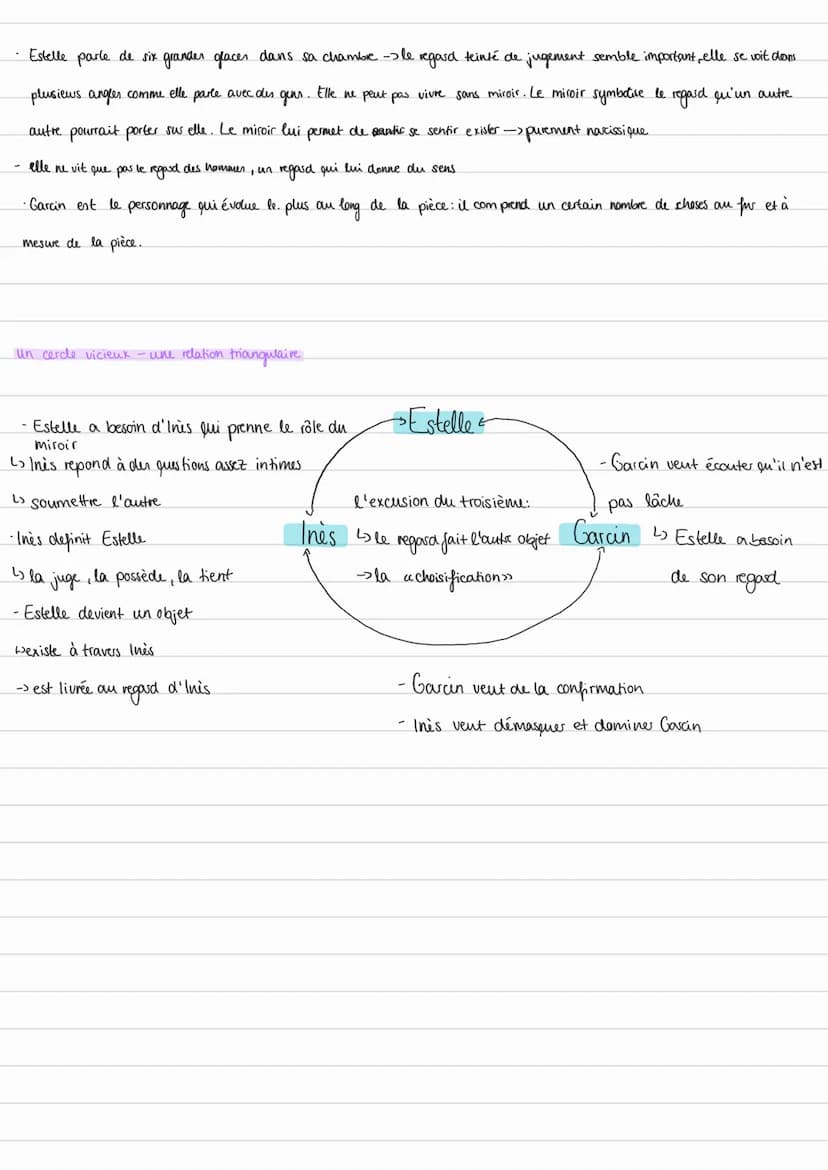 · Estelle parle de six grandes glaces dans sa chambre -> le regard teinté de jugement semble important, elle se voit dans
plusieurs angles comme elle parle avec des gens. Elle ne peut pas vivre sans miroir. Le miroir symbolise le regard qu'un autre
autre pourrait porter sur elle. Le miroir lui permet de se sentir exister -> purement narcissique
- elle ne vit que pas le regard des hommes, un regard qui lui donne du sens
· Garcin est le personnage qui évolue le plus au long de la pièce: il comprend un certain nombre de choses au fur et à
mesure de la pièce.
un cercle vicieux - une relation triangulaire
->Estelle
- Estelle a besoin d'Inès qui prenne le rôle du
miroir
↳ Inès repond à des questions assez intimes
- Garcin veut écouter qu'il n'est
↳ soumettre l'autre
l'excusion du troisième:
pas lâche
· Inès definit Estelle
Inès
↳ le regard fait l'autre objet
Garcin
↳ Estelle a besoin
↳ la juge, la possède, la tient
-> la «choisification»
de son regard
- Estelle devient un objet
↳ existe à travers Inès
-> est livrée au regard d'Inès
- Garcin veut de la confirmation
- Inès veut démasquer et dominer Garcin